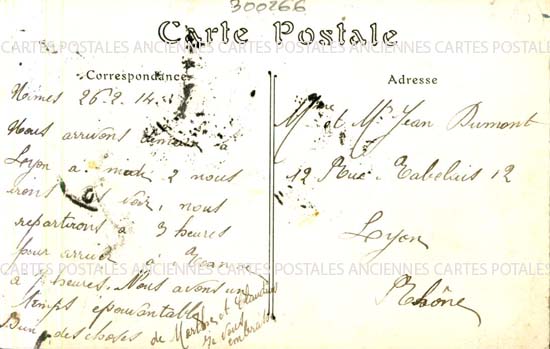 300266
Carte Postale
CARTES POSTALES ANCIENNES CARTES POSTALES ANCIENNES CARTES POSTALES
Correspondance
Nimes 26.2.14.
Nous arrivons demain à
Lyon à midi 2 nous
irons vous voir, nous
repartirons à 3 heures
pour arriver à
à heures. Nous avons un
temps épouvantable
Bien des choses de Marthe et Claudius
Je vous
embrasse
Adresse
Mme et Mr Jean Dumont
12 Rue Rabelais 12
Lyon
Rhône
CARTES POSTALES ANCIENNES CARTES POSTALES ANCIENNES CARTES POSTALES